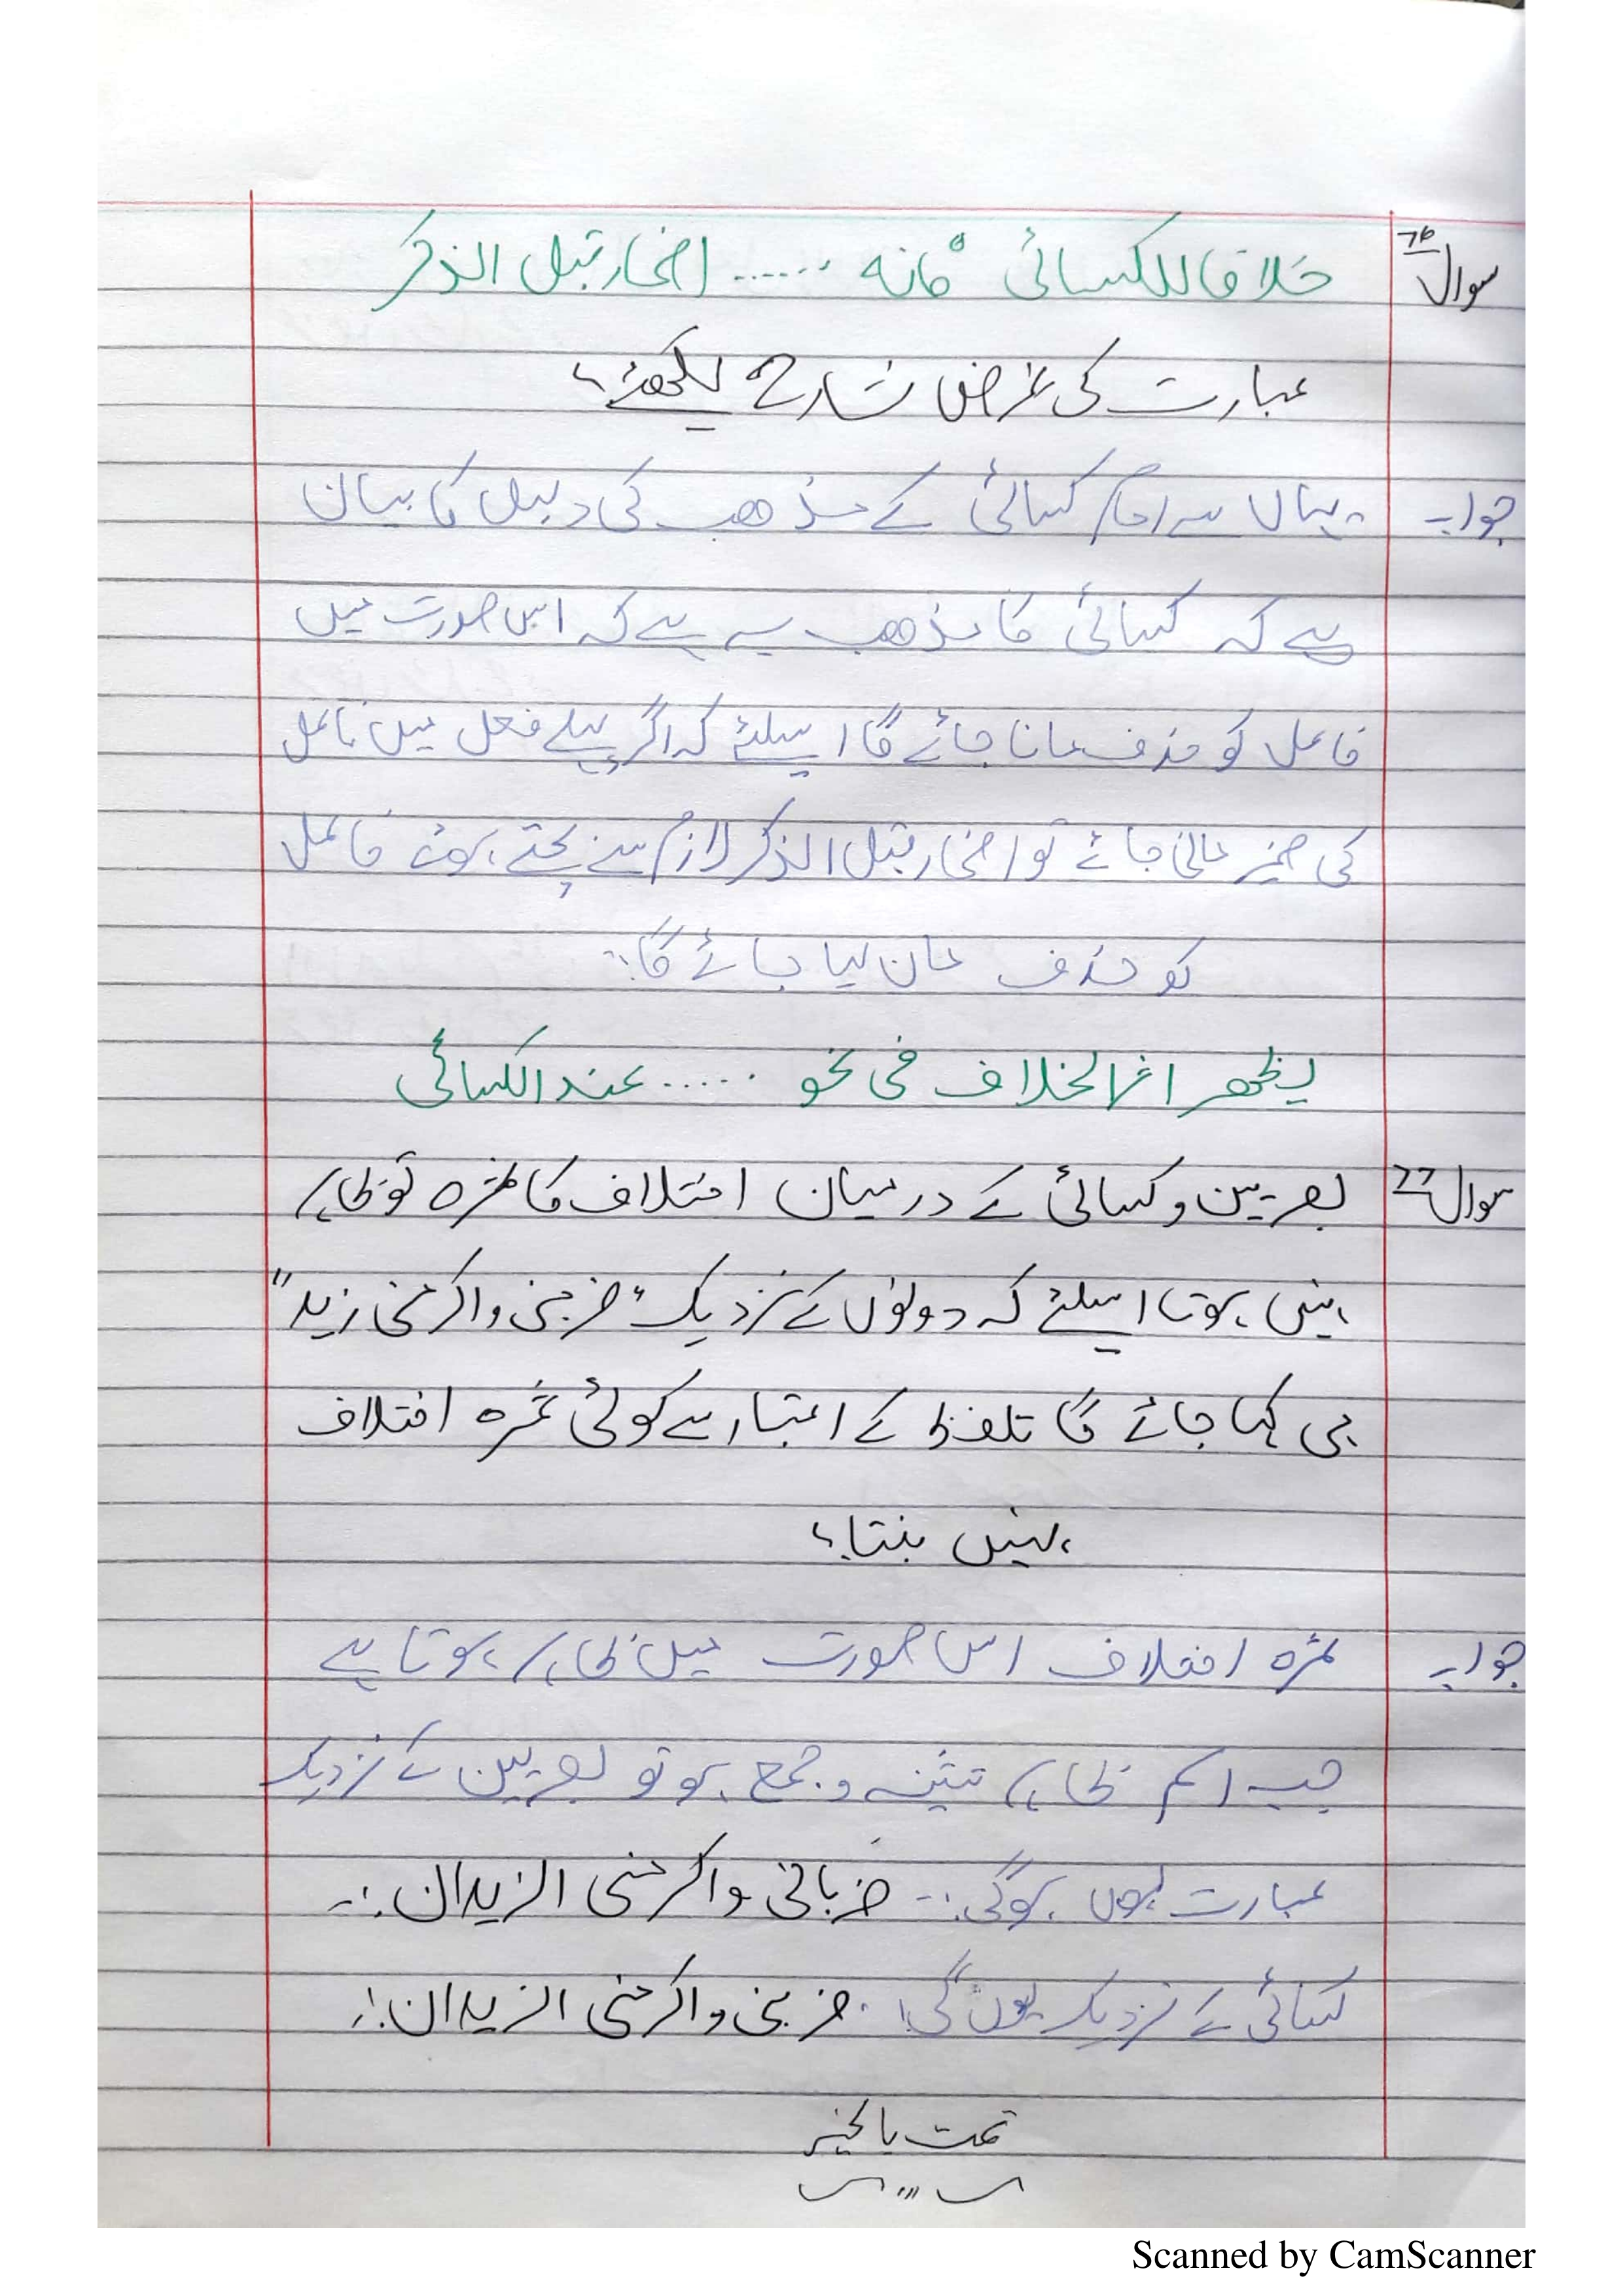 سوال 76 خلافا للکسائی فانہ ...... اضمار قبل الذکر
عبارت کی غرض شارح لکھئے؟
جواب یہاں سے امام کسائی کے مذھب کی دلیل کا بیان
ہے کہ کسائی کا مذھب یہ ہے کہ اس صورت میں
فاعل کو حذف مانا جائے گا اسلئے کہ اگر پہلے فعل میں فاعل
کی ضمیر مانی جائے تو اضمار قبل الذکر لازم سے بچتے ہوئے فاعل
کو حذف مان لیا جائے گا۔
یظھر اثر الخلاف فی نحو ...... عند الکسائی
سوال 77 بصریین و کسائی کے درمیان اختلاف کا ثمرہ تو ظاہر
نہیں ہوتا اسلئے کہ دونوں کے نزدیک "ضربنی واکرمنی زید"
ہی کہا جائے گا تلفظ کے اعتبار سے کوئی ثمرہ اختلاف
نہیں بنتا؟
جواب ثمرہ اختلاف اس صورت میں ظاہر ہوتا ہے
جب اسم ظاہر تثنیہ و جمع ہو تو بصریین کے نزدیک
عبارت یوں ہوگی:۔ ضربانی واکرمنی الزیدان:۔
کسائی کے نزدیک یوں گی! ضربنی واکرمنی الزیدان!۔
تمت بالخیر
Scanned by CamScanner